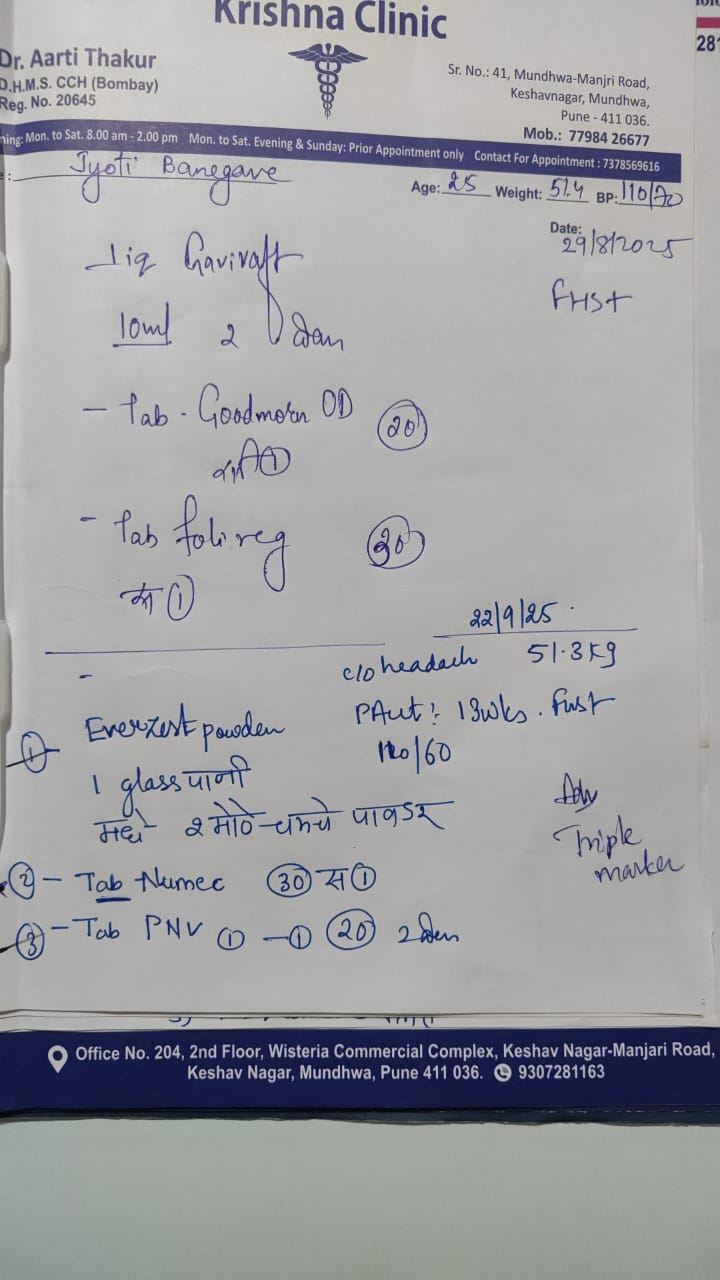 Krishna Clinic
Dr. Aarti Thakur
D.H.M.S. CCH (Bombay)
Reg. No. 20645
Sr. No.: 41, Mundhwa-Manjri Road,
Keshavnagar, Mundhwa,
Pune - 411 036.
Mob.: 77984 26677
281
ning: Mon. to Sat. 8.00 am - 2.00 pm Mon. to Sat. Evening & Sunday: Prior Appointment only Contact For Appointment : 7378569616
Jyoti Banegave
Age: 25 Weight: 51.4 BP: 110/70
Date:
29/8/2025
FHS+
Liq
10ml 2
- Tab. Goodmorn OD 20
1
- Tab Folireg 30
1
22/9/25
c/o headach 51.3 kg
PAut: 13wks.
Everzest powder
110/60
1 glass पाणी
मध्ये २ मोठे चमचे पावडर
Adv
Triple
marker
2 - Tab Numec 30 स 1
3 - Tab PNV 1 - 1 20
Office No. 204, 2nd Floor, Wisteria Commercial Complex, Keshav Nagar-Manjari Road,
Keshav Nagar, Mundhwa, Pune 411 036. 9307281163